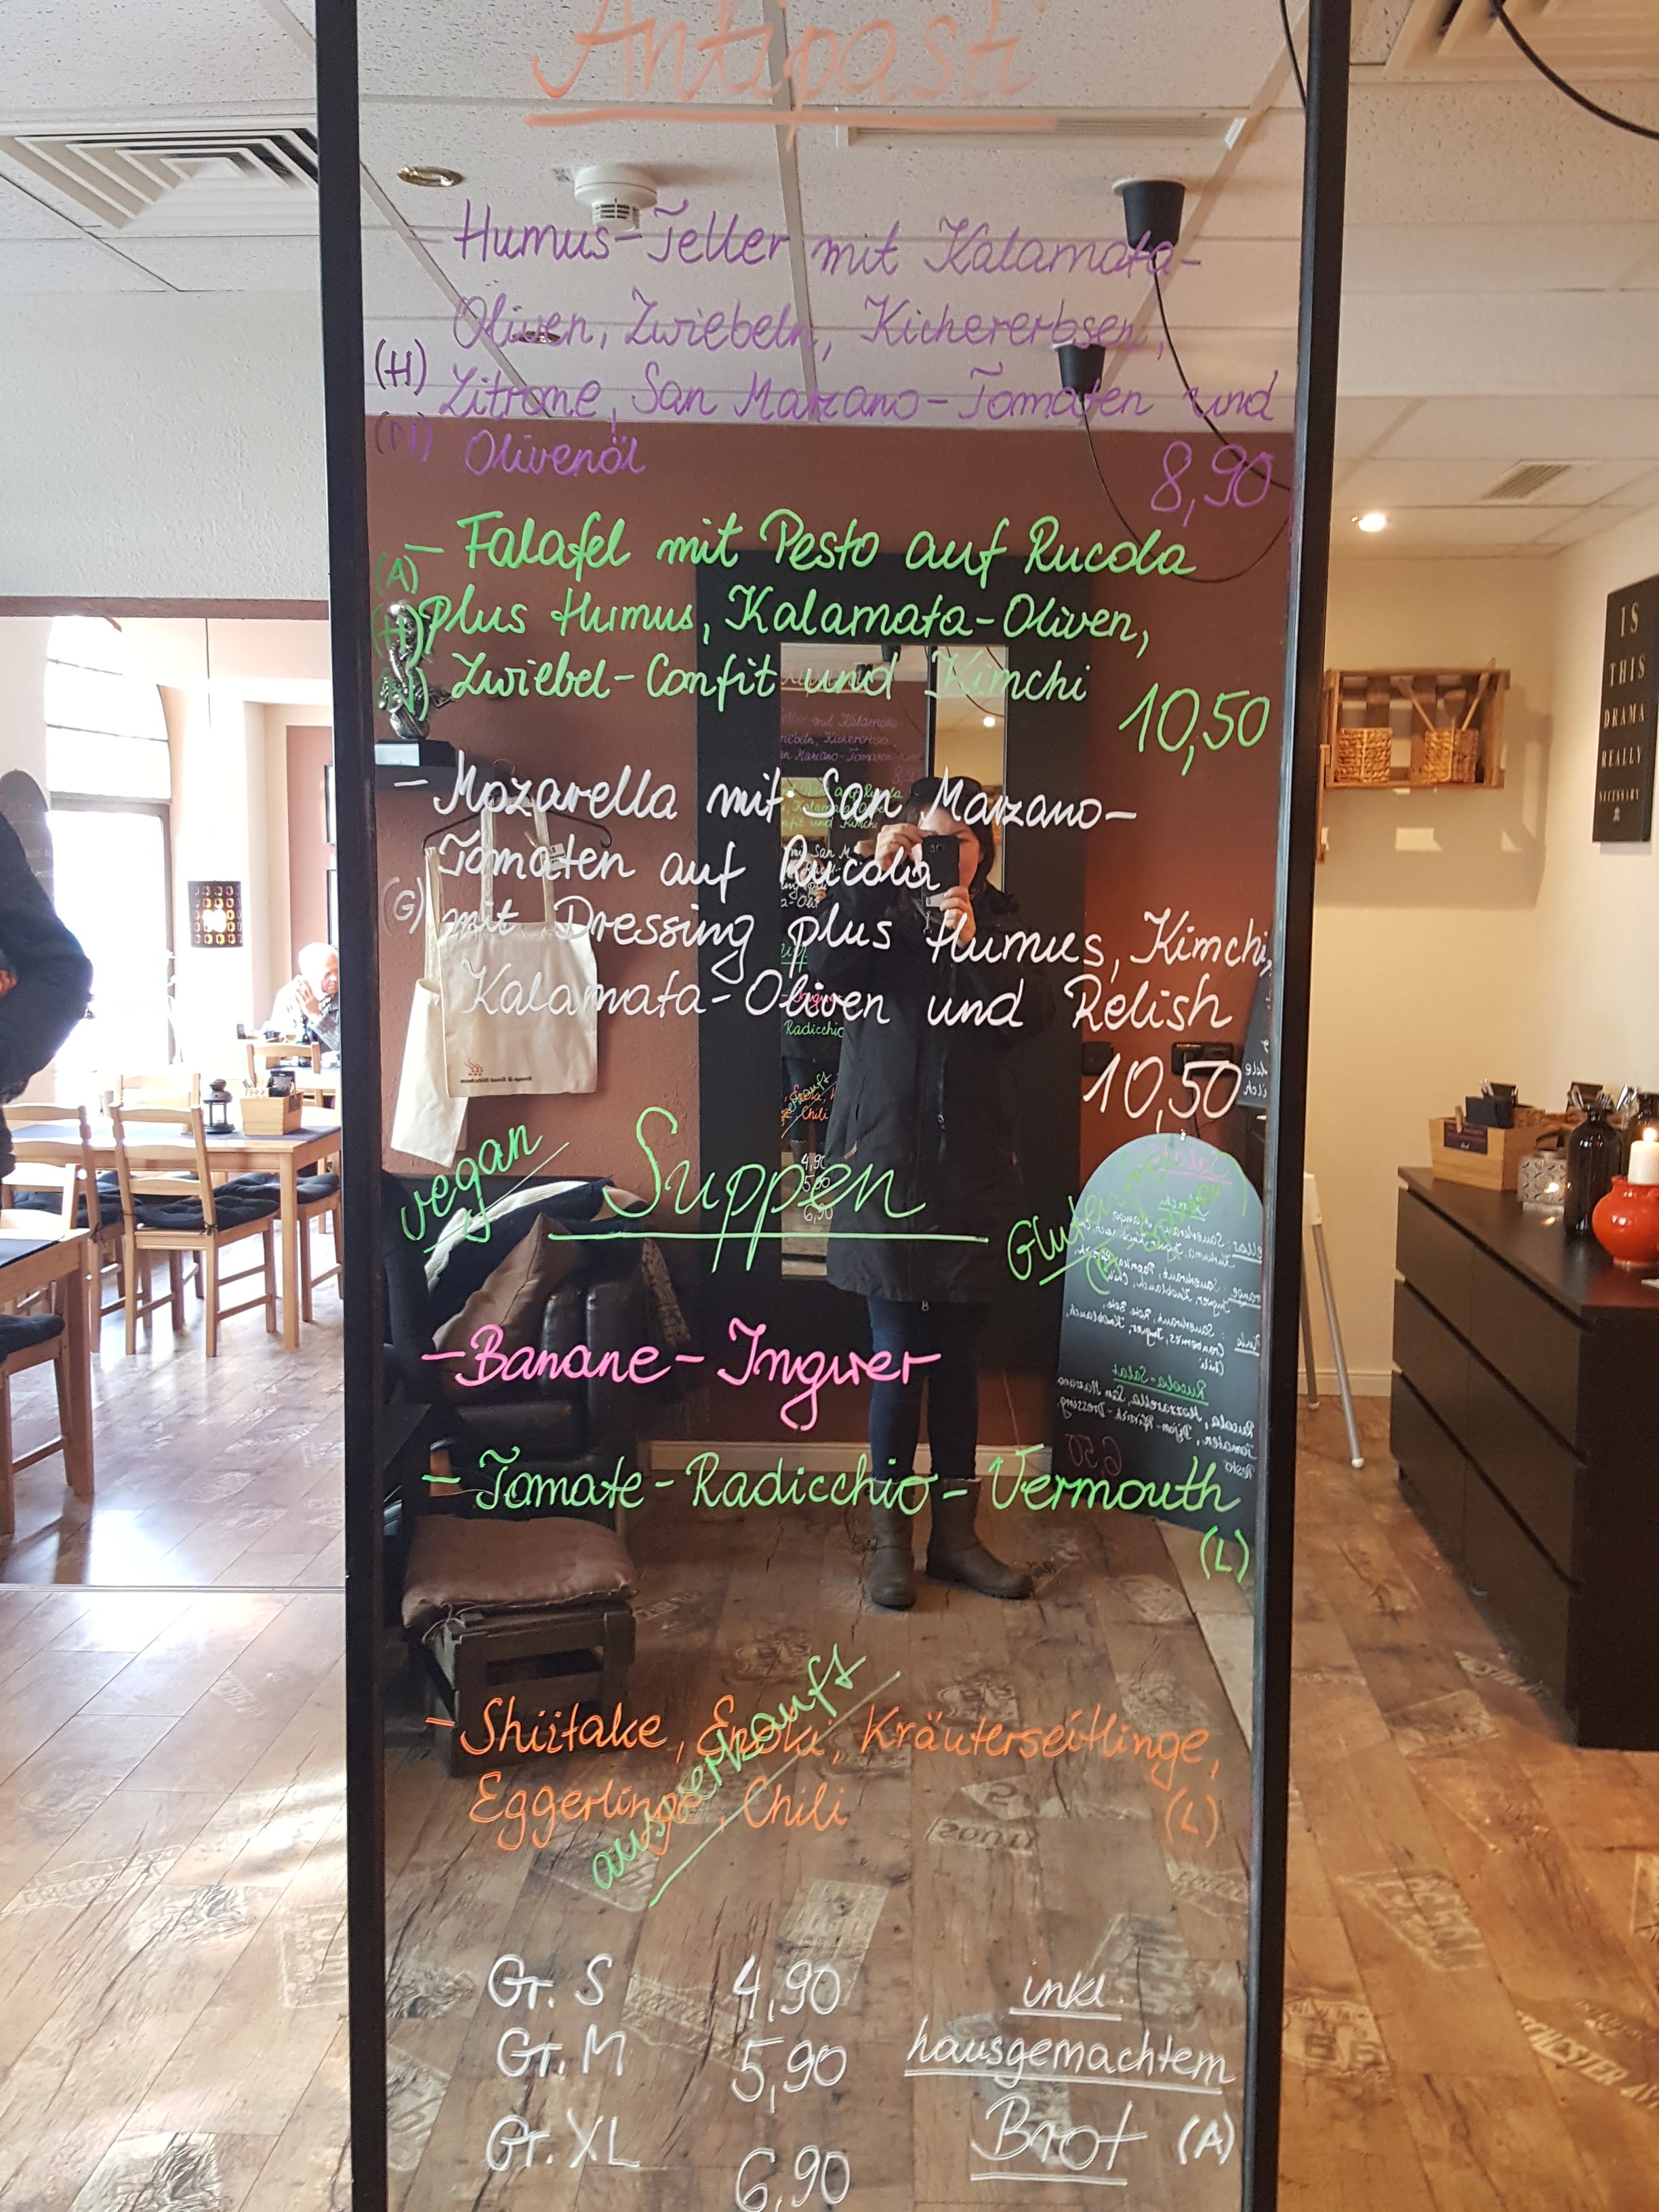 Antipasti
Humus-Teller mit Kalamata-
Oliven, Zwiebeln, Kichererbsen,
(H) Zitrone, San Marzano-Tomaten und
(N) Olivenöl
8,90
- Falafel mit Pesto auf Rucola
(A)
(H) plus Humus, Kalamata-Oliven,
(N) Zwiebel-Confit und Kimchi
10,50
- Mozarella mit San Marzano-
Tomaten auf Rucola
(G) mit Dressing plus Humus, Kimchi,
Kalamata-Oliven und Relish
10,50
vegan
Suppen
- Banane-Ingwer
- Tomate-Radicchio-Vermouth
(L)
- Shiitake, Enoki, Kräuterseitlinge,
Eggerlinge, Chili (L)
ausverkauft
Gr. S 4,90 inkl.
Gr. M 5,90 hausgemachtem
Gr. XL 6,90 Brot (A)
IS
THIS
DRAMA
REALLY
NECESSARY